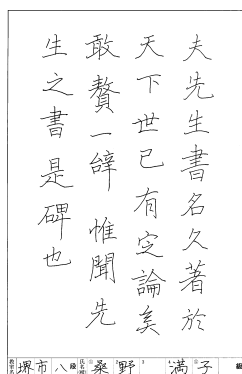 夫先生書名久著於
天下世已有定論矣
敢贅一辞惟聞先
生之書是碑也
教室名 堺市 八段 氏名 桑野 満子 級